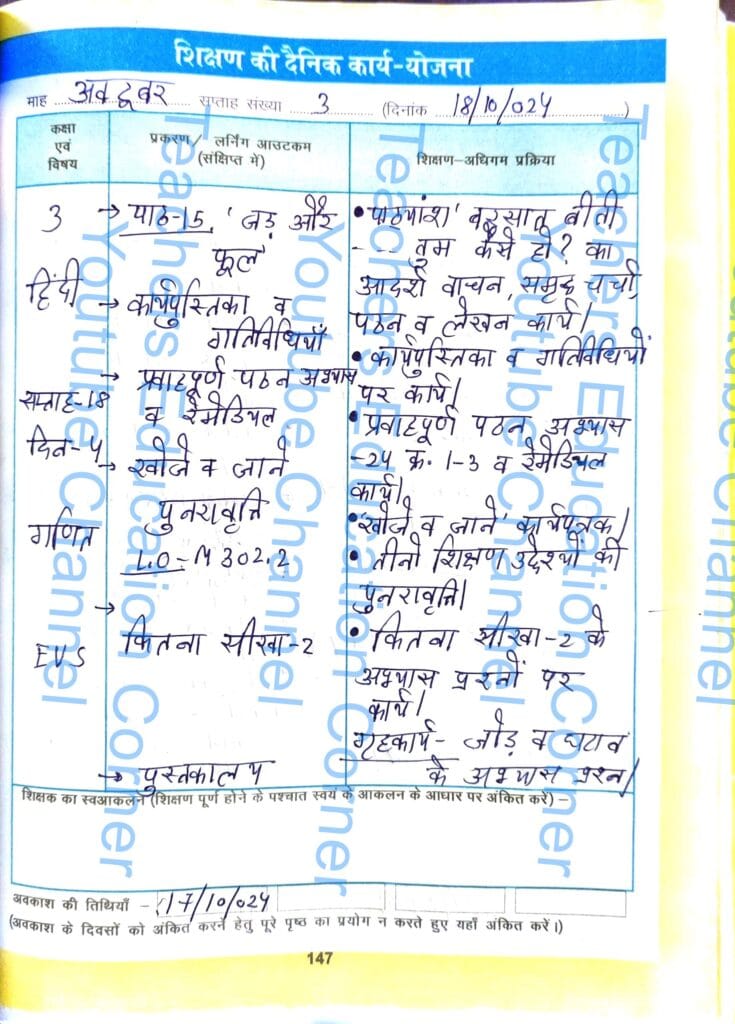 शिक्षण की दैनिक कार्य-योजना
माह अक्टूबर सप्ताह संख्या 3 (दिनांक 18/10/024)
कक्षा एवं विषय
प्रकरण/ लर्निंग आउटकम (संक्षिप्त में)
शिक्षण-अधिगम प्रक्रिया
3
हिंदी
सप्ताह-18
दिन-5
गणित
EVS
→ पाठ-15, 'जड़ और
फूल'
→ कार्यपुस्तिका व
गतिविधियाँ
→ प्रवाहपूर्ण पठन अभ्यास
व रेमेडियल
→ खोजे व जाने
पुनरावृत्ति
L.O-M 302.2
→
कितना सीखा-2
→ पुस्तकालय
• 'पाठ्यांश' बरसात बीती
--- तुम कैसे हो? का
आदर्श वाचन, समूह चर्चा,
पठन व लेखन कार्य।
• कार्यपुस्तिका व गतिविधियों
पर कार्य।
• प्रवाहपूर्ण पठन अभ्यास
-24 क्र. 1-3 व रेमेडियल
कार्य।
• 'खोजे व जाने' कार्यपत्रक।
• तीनो शिक्षण उद्देश्यों की
पुनरावृत्ति।
• कितना सीखा-2 के
अभ्यास प्रश्नों पर
कार्य।
गृहकार्य- जोड़ व घटाव
के अभ्यास प्रश्न।
शिक्षक का स्वआकलन (शिक्षण पूर्ण होने के पश्चात स्वयं के आकलन के आधार पर अंकित करें) –
अवकाश की तिथियाँ – 17/10/024
(अवकाश के दिवसों को अंकित करने हेतु पूरे पृष्ठ का प्रयोग न करते हुए यहाँ अंकित करें।)
147
Teachers Education Corner
Youtube Channel
Teachers Education Corner
Youtube Channel
Teachers Education Corner
Youtube Channel